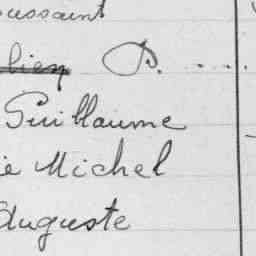 oussaint
P. ....
Guillaume
ie Michel
Auguste